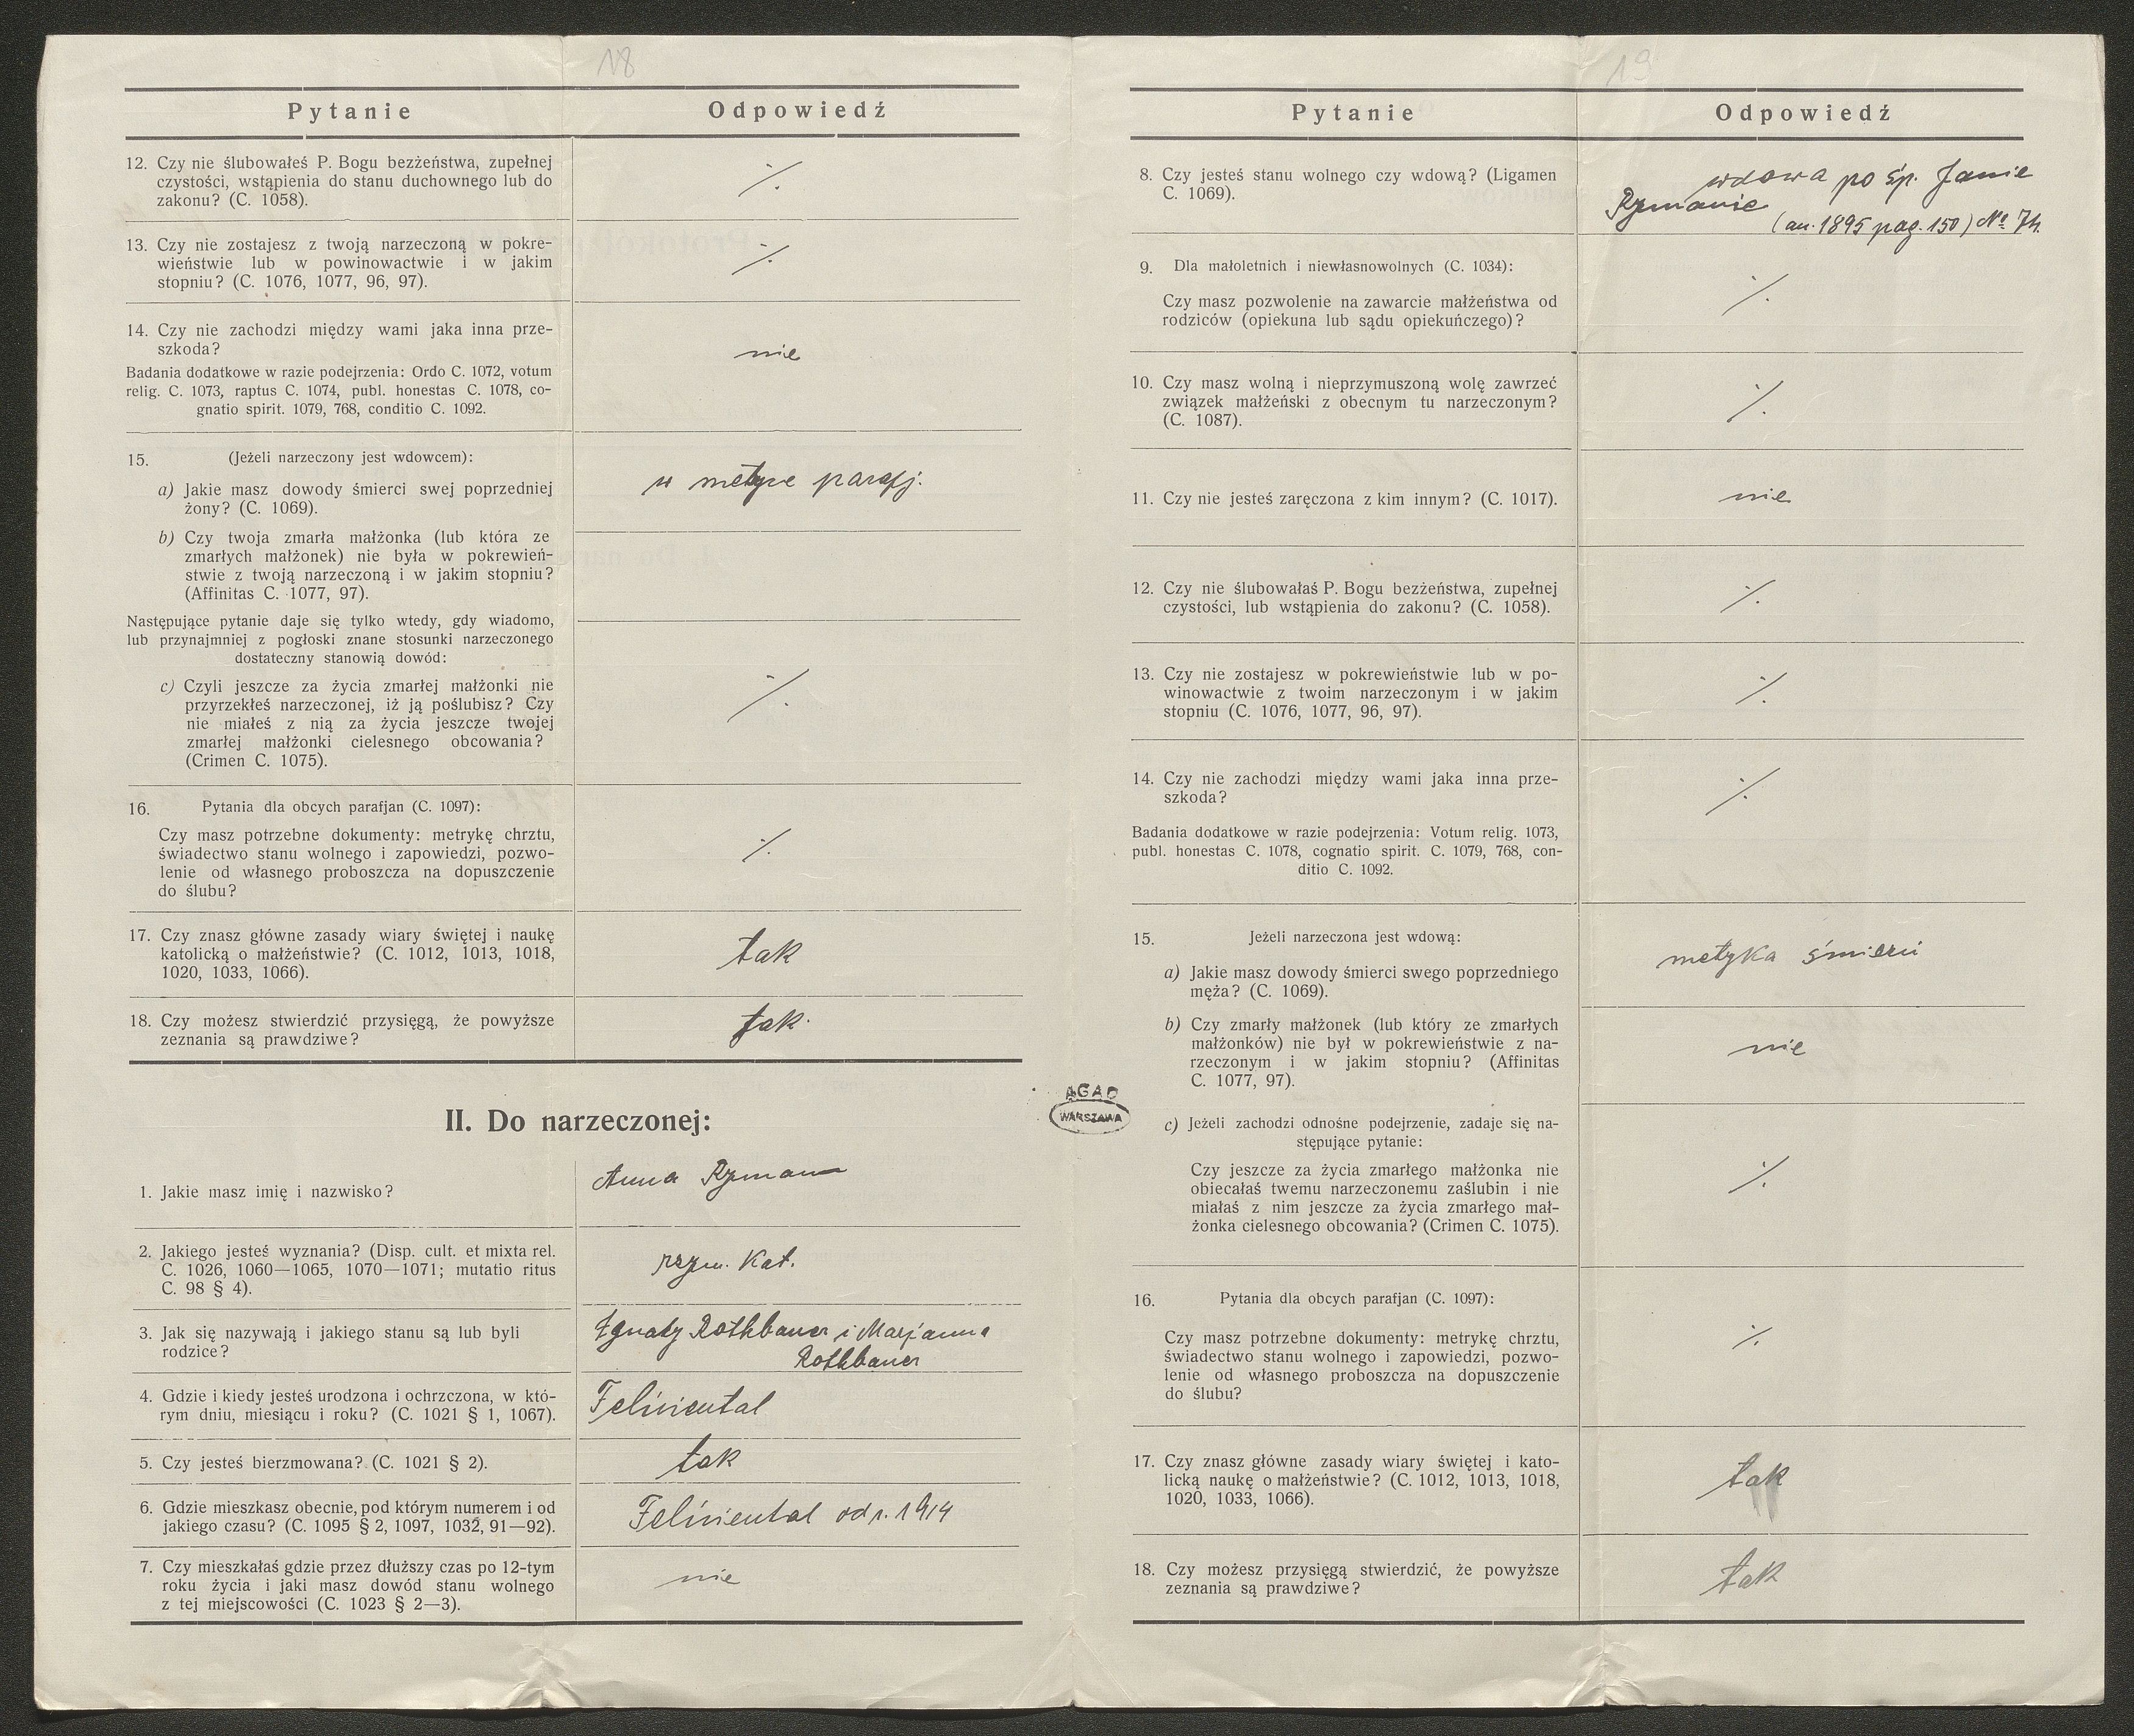 18
Pytanie
Odpowiedź
12. Czy nie ślubowałeś P. Bogu bezżeństwa, zupełnej
czystości, wstąpienia do stanu duchownego lub do
zakonu? (C. 1058).
·/.
13. Czy nie zostajesz z twoją narzeczoną w pokre-
wieństwie lub w powinowactwie i w jakim
stopniu? (C. 1076, 1077, 96, 97).
·/.
14. Czy nie zachodzi między wami jaka inna prze-
szkoda?
nie
Badania dodatkowe w razie podejrzenia: Ordo C. 1072, votum
relig. C. 1073, raptus C. 1074, publ. honestas C. 1078, co-
gnatio spirit. 1079, 768, conditio C. 1092.
15. (Jeżeli narzeczony jest wdowcem):
a) Jakie masz dowody śmierci swej poprzedniej
żony? (C. 1069).
w metyce parafj.
b) Czy twoja zmarła małżonka (lub która ze
zmarłych małżonek) nie była w pokrewień-
stwie z twoją narzeczoną i w jakim stopniu?
(Affinitas C. 1077, 97).
Następujące pytanie daje się tylko wtedy, gdy wiadomo,
lub przynajmniej z pogłoski znane stosunki narzeczonego
dostateczny stanowią dowód:
c) Czyli jeszcze za życia zmarłej małżonki nie
przyrzekłeś narzeczonej, iż ją poślubisz? Czy
nie miałeś z nią za życia jeszcze twojej
zmarłej małżonki cielesnego obcowania?
(Crimen C. 1075).
·/.
16. Pytania dla obcych parafjan (C. 1097):
Czy masz potrzebne dokumenty: metrykę chrztu,
świadectwo stanu wolnego i zapowiedzi, pozwo-
lenie od własnego proboszcza na dopuszczenie
do ślubu?
·/.
17. Czy znasz główne zasady wiary świętej i naukę
katolicką o małżeństwie? (C. 1012, 1013, 1018,
1020, 1033, 1066).
tak
18. Czy możesz stwierdzić przysięgą, że powyższe
zeznania są prawdziwe?
tak.
II. Do narzeczonej:
1. Jakie masz imię i nazwisko?
Anna Ryman
2. Jakiego jesteś wyznania? (Disp. cult. et mixta rel.
C. 1026, 1060—1065, 1070—1071; mutatio ritus
C. 98 § 4).
rzym. Kat.
3. Jak się nazywają i jakiego stanu są lub byli
rodzice?
Ignacy Rothbauer i Marjanna
Rothbauer
4. Gdzie i kiedy jesteś urodzona i ochrzczona, w któ-
rym dniu, miesiącu i roku? (C. 1021 § 1, 1067).
Felinental
5. Czy jesteś bierzmowana? (C. 1021 § 2).
tak
6. Gdzie mieszkasz obecnie, pod którym numerem i od
jakiego czasu? (C. 1095 § 2, 1097, 1032, 91—92).
Felinental od r. 1914
7. Czy mieszkałaś gdzie przez dłuższy czas po 12-tym
roku życia i jaki masz dowód stanu wolnego
z tej miejscowości (C. 1023 § 2—3).
nie
AGAD
WARSZAWA
19
Pytanie
Odpowiedź
8. Czy jesteś stanu wolnego czy wdową? (Ligamen
C. 1069).
wdowa po śp. Janie
Rymanie
(an. 1895 pag. 150) No 74.
9. Dla małoletnich i niewłasnowolnych (C. 1034):
Czy masz pozwolenie na zawarcie małżeństwa od
rodziców (opiekuna lub sądu opiekuńczego)?
·/.
10. Czy masz wolną i nieprzymuszoną wolę zawrzeć
związek małżeński z obecnym tu narzeczonym?
(C. 1087).
·/.
11. Czy nie jesteś zaręczona z kim innym? (C. 1017).
nie
12. Czy nie ślubowałaś P. Bogu bezżeństwa, zupełnej
czystości, lub wstąpienia do zakonu? (C. 1058).
·/.
13. Czy nie zostajesz w pokrewieństwie lub w po-
winowactwie z twoim narzeczonym i w jakim
stopniu (C. 1076, 1077, 96, 97).
·/.
14. Czy nie zachodzi między wami jaka inna prze-
szkoda?
·/.
Badania dodatkowe w razie podejrzenia: Votum relig. 1073,
publ. honestas C. 1078, cognatio spirit. C. 1079, 768, con-
ditio C. 1092.
15. Jeżeli narzeczona jest wdową:
a) Jakie masz dowody śmierci swego poprzedniego
męża? (C. 1069).
metyka śmierci
b) Czy zmarły małżonek (lub który ze zmarłych
małżonków) nie był w pokrewieństwie z na-
rzeczonym i w jakim stopniu? (Affinitas
C. 1077, 97).
nie
c) Jeżeli zachodzi odnośne podejrzenie, zadaje się na-
stępujące pytanie:
Czy jeszcze za życia zmarłego małżonka nie
obiecałaś twemu narzeczonemu zaślubin i nie
miałaś z nim jeszcze za życia zmarłego mał-
żonka cielesnego obcowania? (Crimen C. 1075).
·/.
16. Pytania dla obcych parafjan (C. 1097):
Czy masz potrzebne dokumenty: metrykę chrztu,
świadectwo stanu wolnego i zapowiedzi, pozwo-
lenie od własnego proboszcza na dopuszczenie
do ślubu?
·/.
17. Czy znasz główne zasady wiary świętej i kato-
licką naukę o małżeństwie? (C. 1012, 1013, 1018,
1020, 1033, 1066).
tak
18. Czy możesz przysięgą stwierdzić, że powyższe
zeznania są prawdziwe?
tak